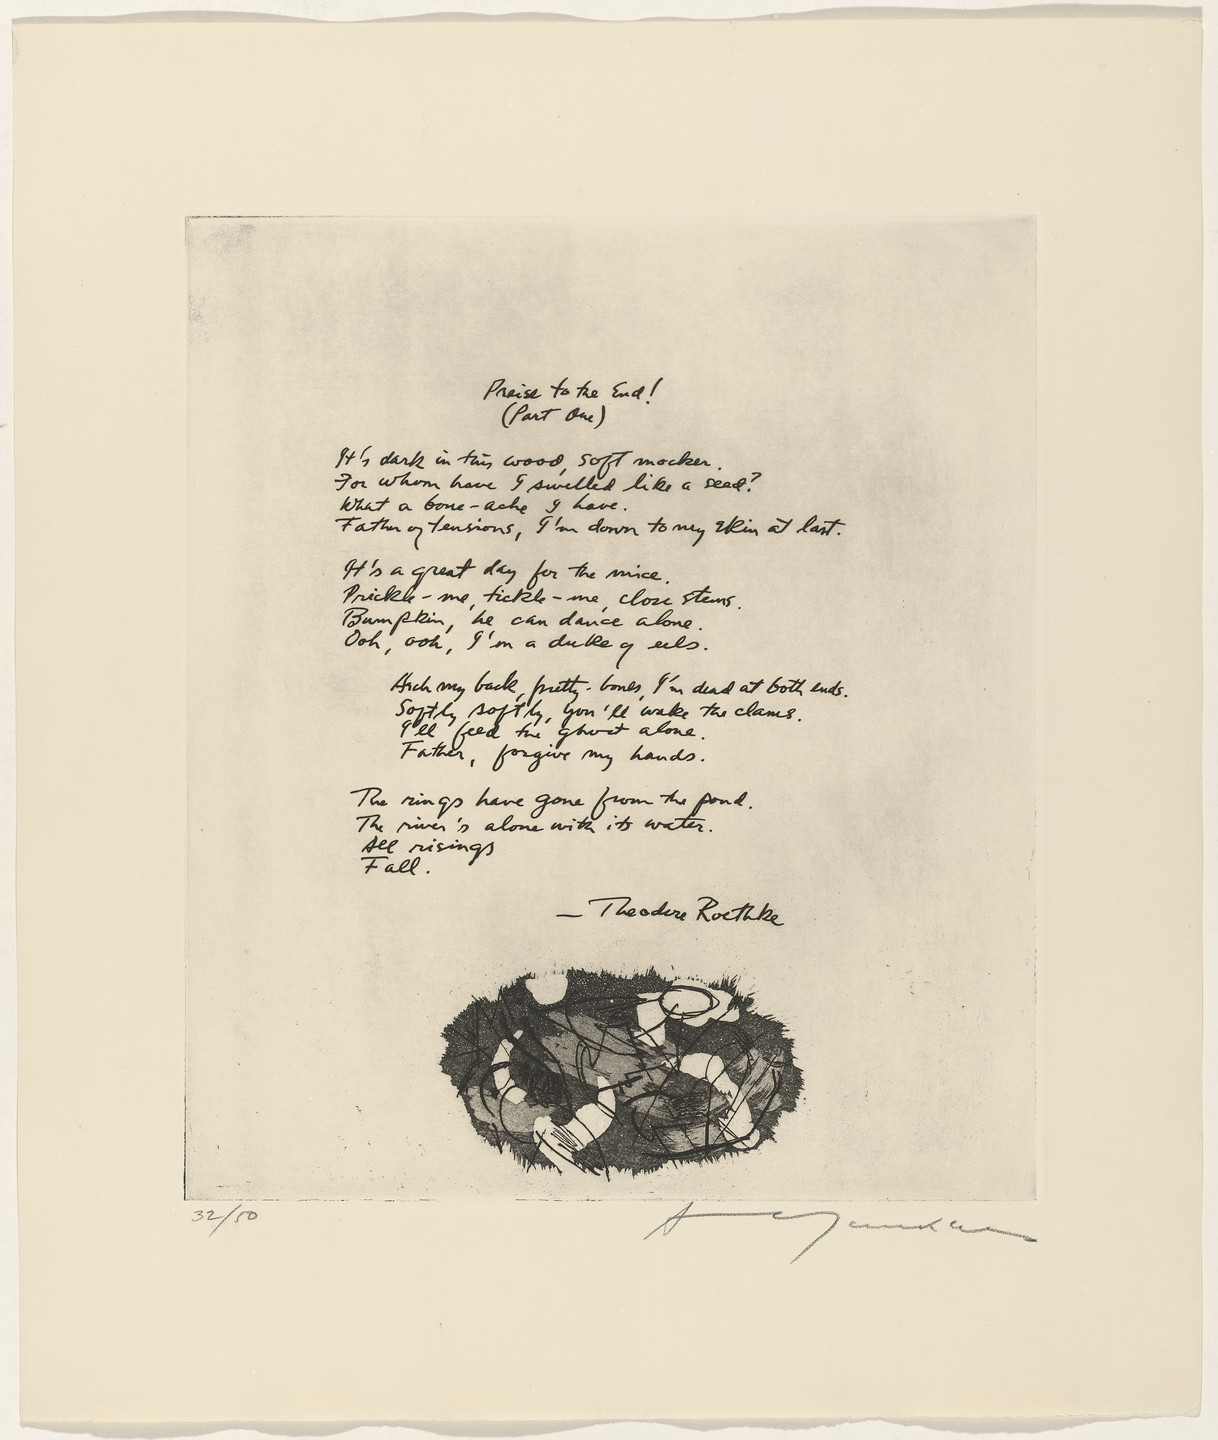 Praise to the End!
(Part One)
It's dark in this wood, soft mocker.
For whom have I swelled like a seed?
What a bone-ache I have.
Father of tensions, I'm down to my skin at last.
It's a great day for the mice.
Prickle-me, tickle-me, close stems.
Bumpkin, he can dance alone.
Ooh, ooh, I'm a duke of eels.
Arch my back, pretty-bones, I'm dead at both ends.
Softly softly, you'll wake the clams.
I'll feed the ghost alone.
Father, forgive my hands.
The rings have gone from the pond.
The river's alone with its water.
All risings
Fall.
— Theodore Roethke
32/50